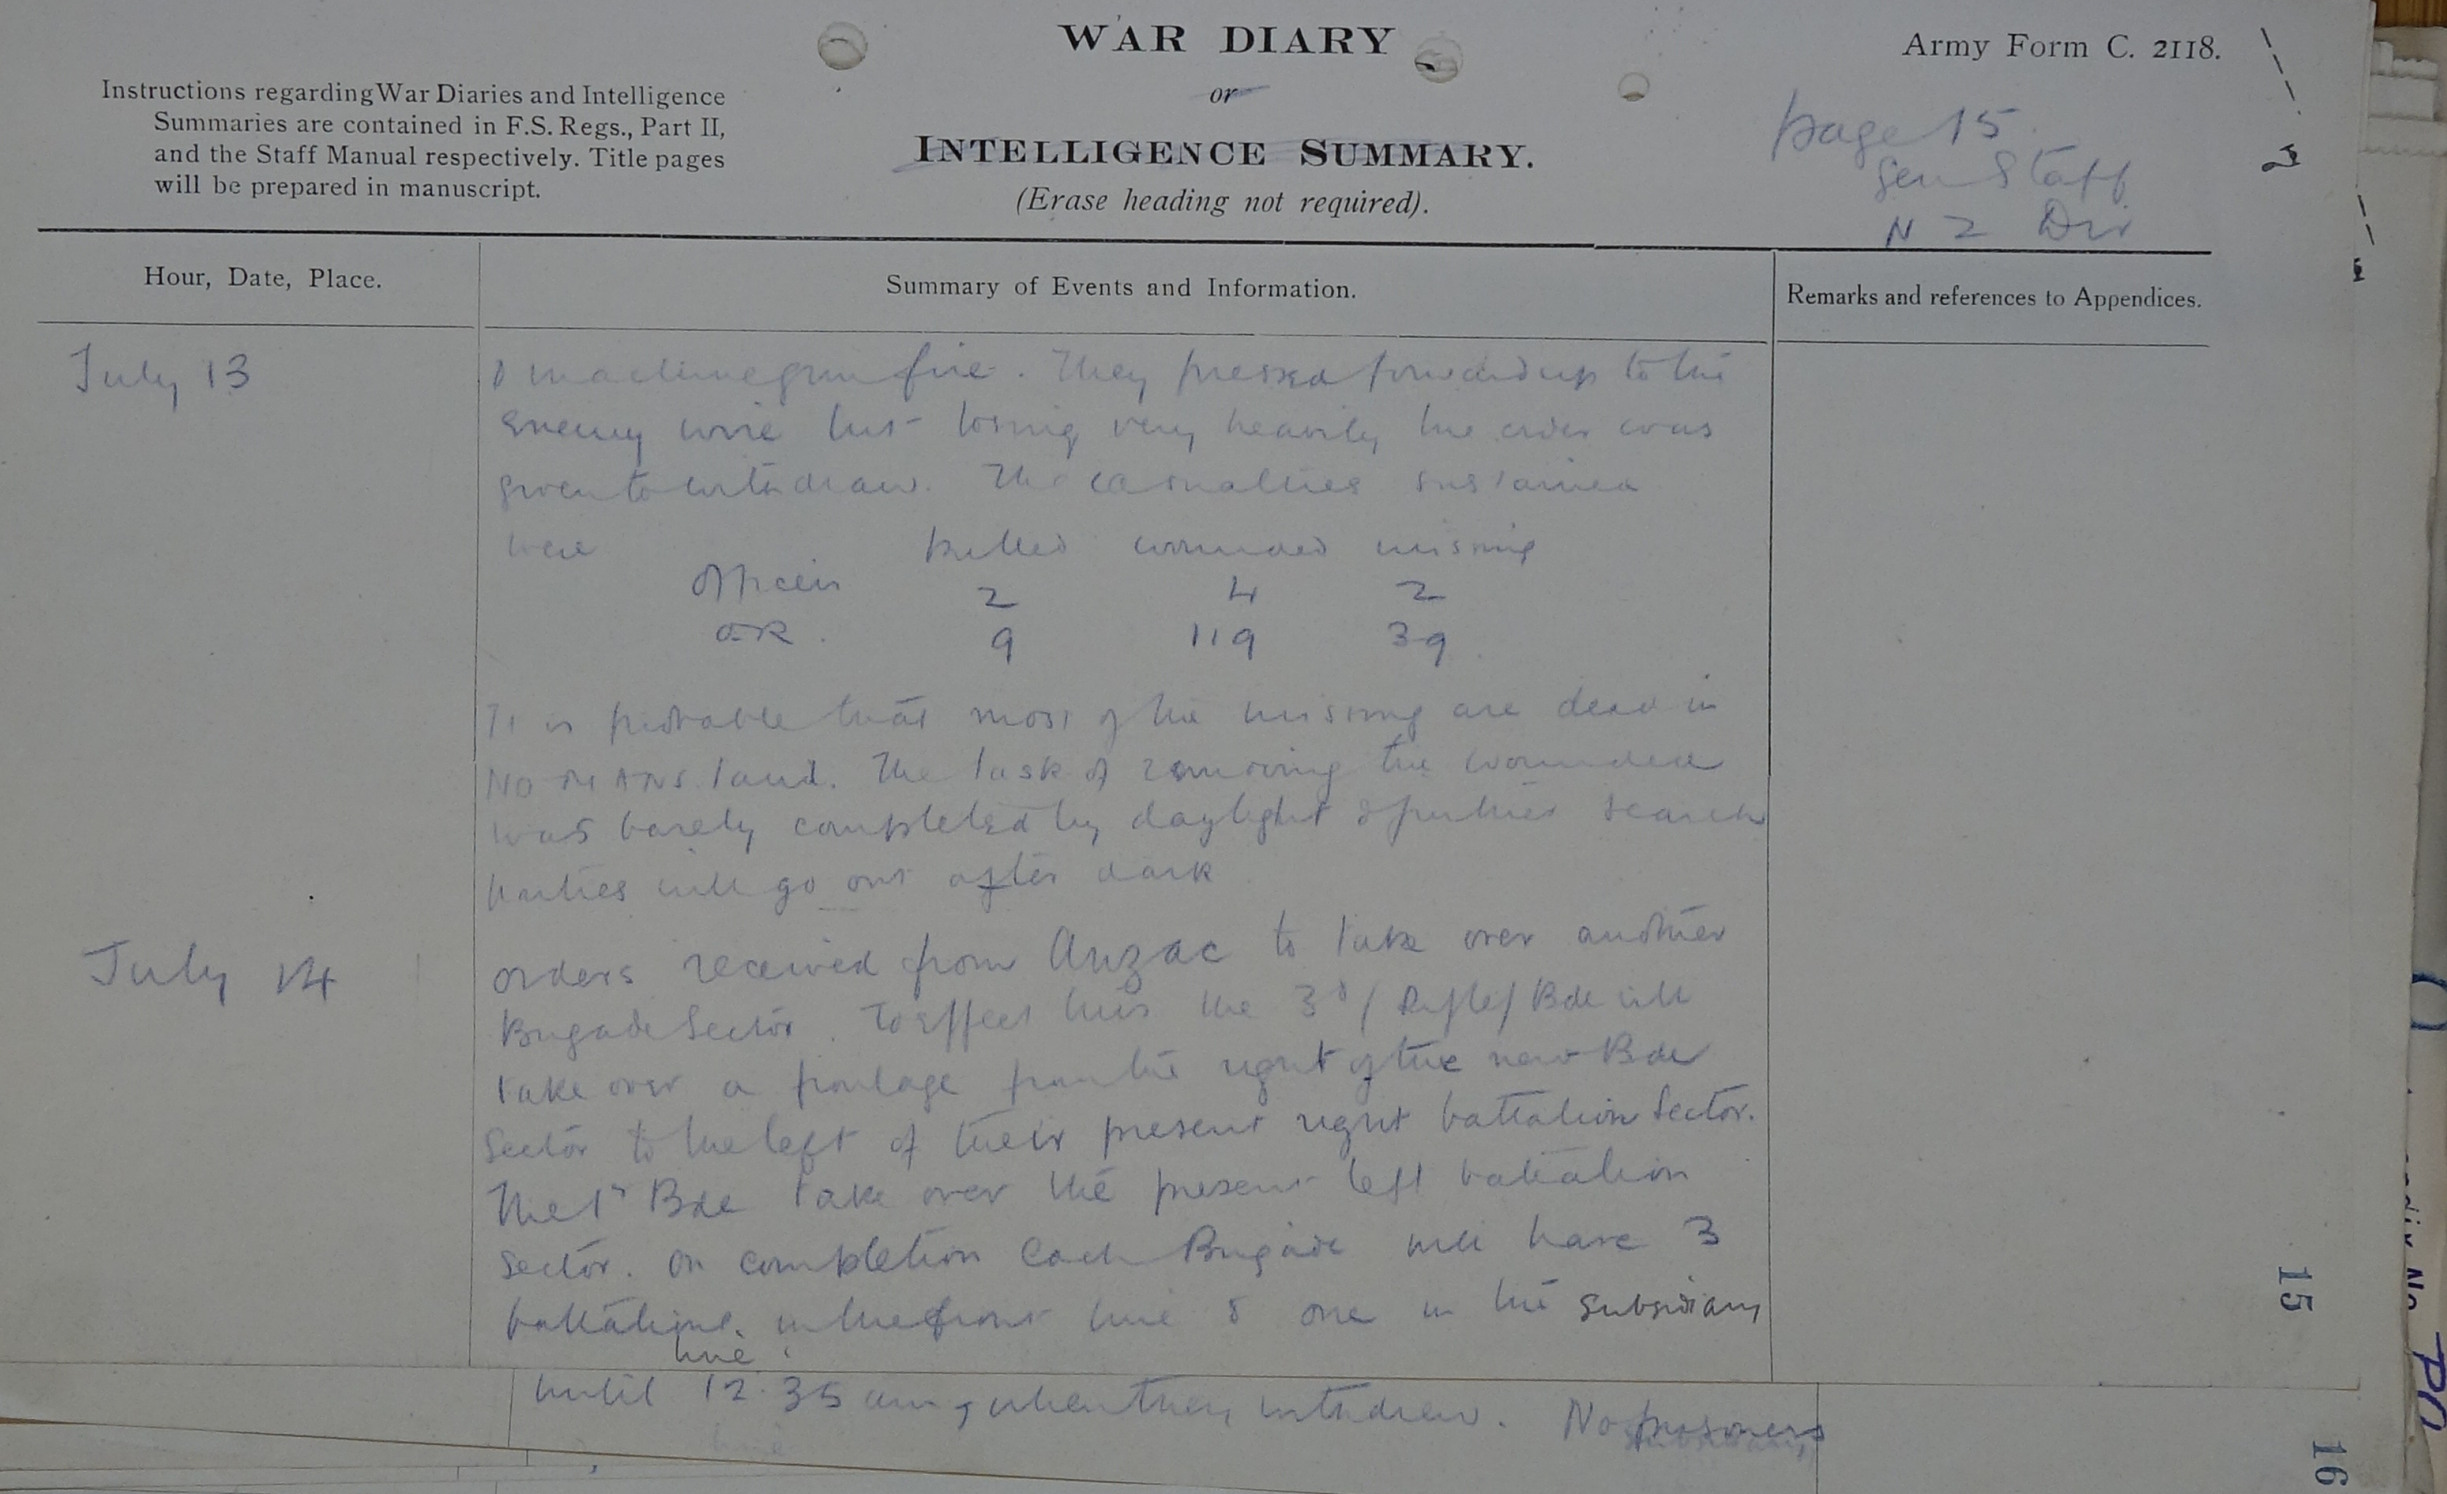 WAR DIARY
or
INTELLIGENCE SUMMARY.
(Erase heading not required).
Army Form C. 2118.
Instructions regarding War Diaries and Intelligence
Summaries are contained in F.S. Regs., Part II,
and the Staff Manual respectively. Title pages
will be prepared in manuscript.
page 15.
Gen Staff
N Z Div
Hour, Date, Place.
Summary of Events and Information.
Remarks and references to Appendices.
July 13
& machine gun fire. They pressed forward up to the
enemy wire but losing very heavily the order was
given to withdraw. The casualties sustained
were killed wounded missing
Officers 2 4 2
OR. 9 119 39.
It is probable that most of the missing are dead in
NO MANS land. The task of removing the wounded
was barely completed by daylight & further search
parties will go out after dark
July 14
orders received from Anzac to take over another
Brigade Sector. To effect this the 3d / Rifle / Bde will
take over a frontage from the right of the new Bde
Sector to the left of their present right battalion Sector.
The 1st Bde take over the present left battalion
Sector. On completion each Brigade will have 3
battalions in the front line & one in the subsidiary
line.
until 12.35 am, when they withdrew. No prisoners
15
16